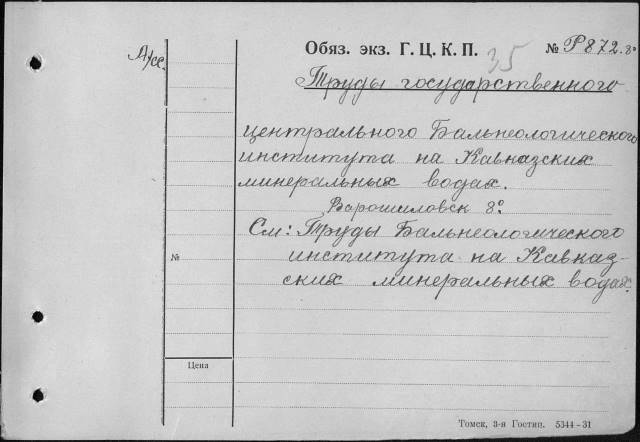 Обяз. экз. Г. Ц. К. П. 35 № Р872.
Труды государственного
центрального Бальнеологического
института на Кавказских
минеральных водах.
Варошиловск 8°.
См: Труды Бальнеологического
института на Кавказ-
ских минеральных водах.
№
Цена
Томск, 3-я Гостип. 5344—31